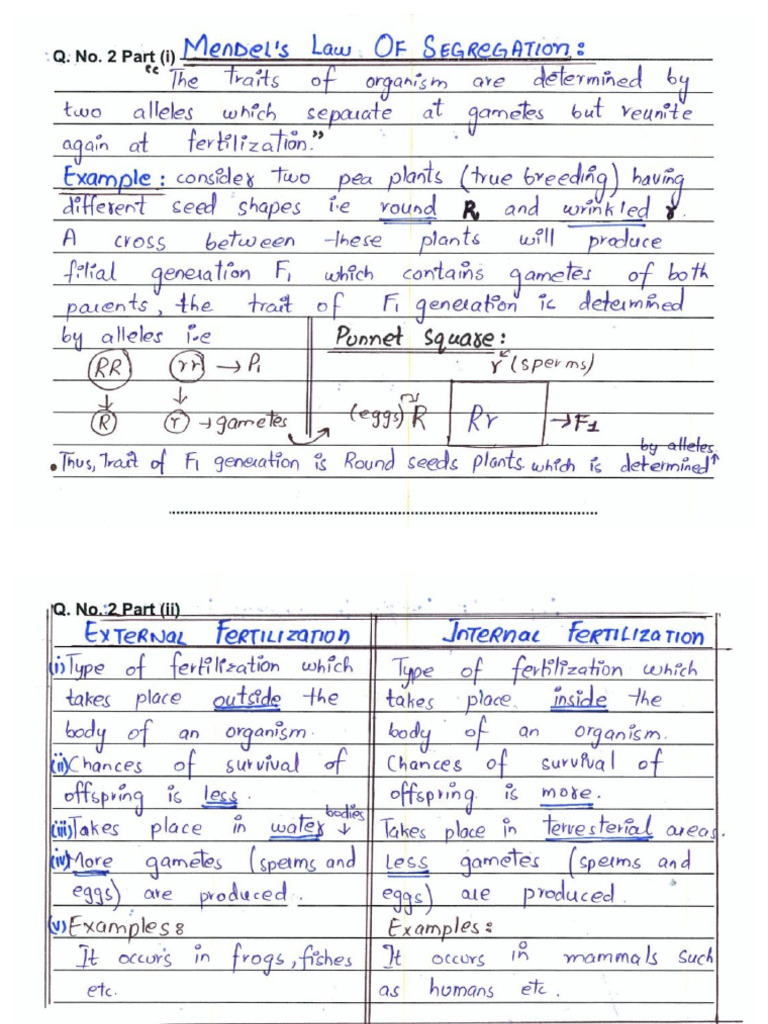 Q. No. 2 Part (i) MENDEL'S LAW OF SEGREGATION:
"The traits of organism are determined by
two alleles which separate at gametes but reunite
again at fertilization."
Example: consider two pea plants (true breeding) having
different seed shapes i.e round R and wrinkled r.
A cross between these plants will produce
filial generation F1 which contains gametes of both
parents, the trait of F1 generation is determined
by alleles i.e
Punnet Square:
RR rr → P1
r (sperms)
R r → gametes
(eggs) R Rr → F1
by alleles
• Thus, Trait of F1 generation is Round seeds plants which is determined↑
Q. No. 2 Part (ii)
EXTERNAL FERTILIZATION
(i) Type of fertilization which
takes place outside the
body of an organism.
(ii) Chances of survival of
offspring is less.
(iii) Takes place in water bodies ↓
(iv) More gametes (sperms and
eggs) are produced.
(v) Examples:
It occurs in frogs, fishes
etc.
INTERNAL FERTILIZATION
Type of fertilization which
takes place inside the
body of an organism.
Chances of survival of
offspring is more.
Takes place in terresterial areas.
Less gametes (sperms and
eggs) are produced.
Examples:
It occurs in mammals such
as humans etc.